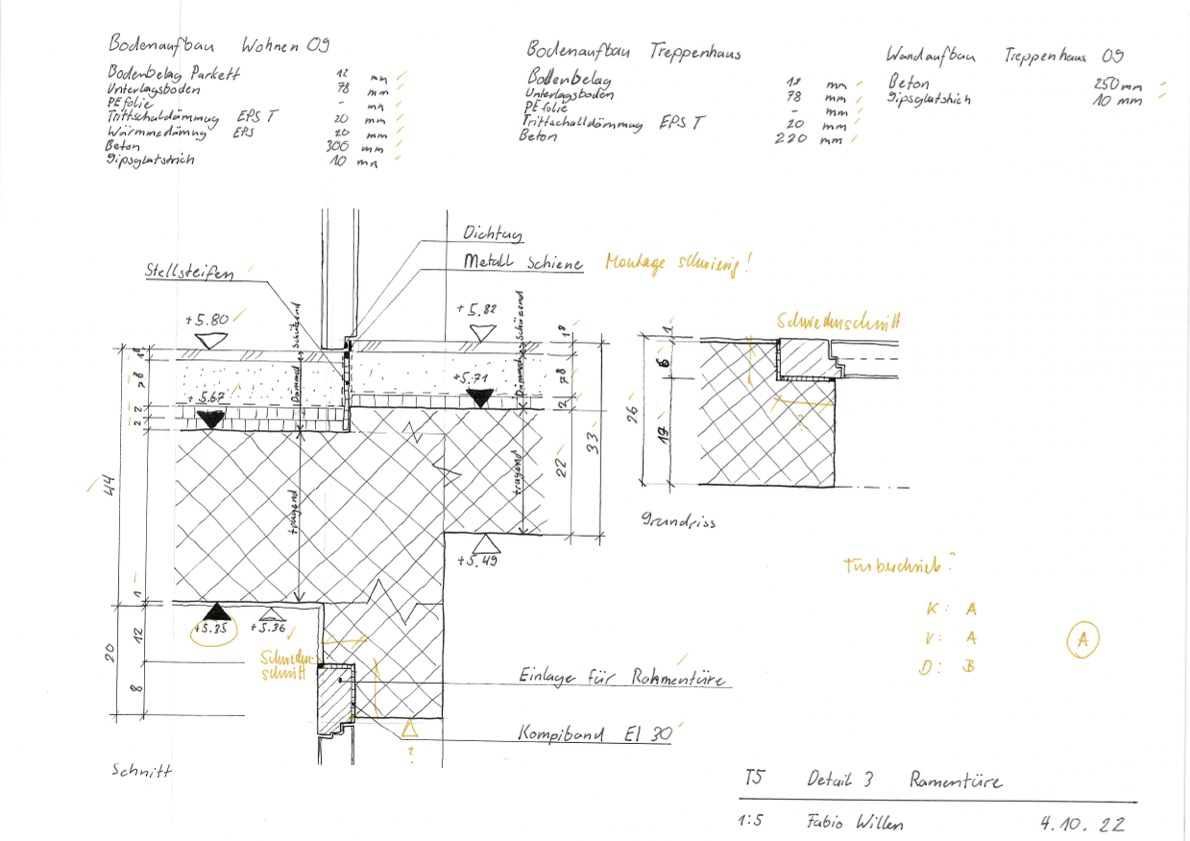 Bodenaufbau Wohnen OG
Bodenbelag Parkett 12 mm
Unterlagsboden 78 mm
PE folie - mm
Trittschaldämmug EPS T 20 mm
Wärmmedämug EPS 20 mm
Beton 300 mm
Gipsglatstrich 10 mm
Bodenaufbau Treppenhaus
Bodenbelag 12 mm
Unterlagsboden 78 mm
PE folie - mm
Trittschalldämmug EPS T 20 mm
Beton 220 mm
Wandaufbau Treppenhaus OG
Beton 250 mm
Gipsglatstrich 10 mm
Dichtug
Metall Schiene Montage schwierig!
Stellsteifen
+5.80
+5.82
+5.67
+5.71
+5.49
+5.35
+5.36
Dämmd en Schützend
Dämmd en Schüzend
tragend
tragend
44
78
2
2
1
20
12
8
18
78
2
22
33
Schweden-
schnitt
Einlage für Rahmentüre
Kompiband EI 30
?
Schnitt
Schwedenschnitt
1
8
17
26
?
Grundriss
Türbeschrieb?
K: A
V: A
D: B
A
T5 Detail 3 Ramentüre
1:5 Fabio Willen 4.10.22